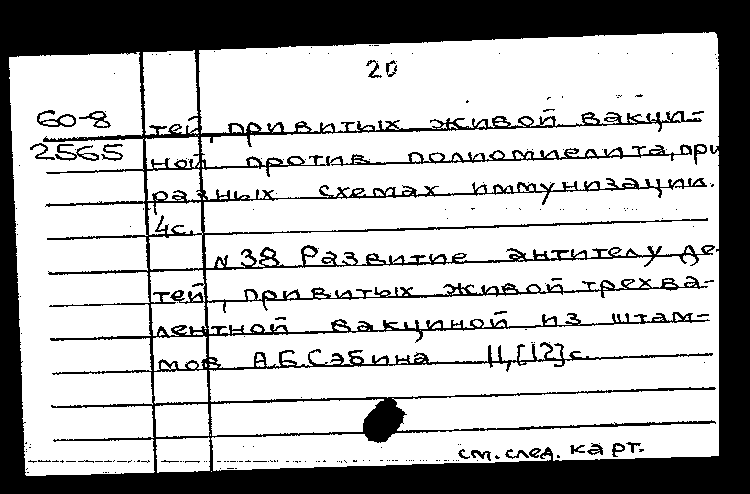 20
60-8
2565
тей, привитых живой вакци=
ной против полиомиелита, при
разных схемах иммунизации.
4с.
N 38 Развитие антител у де-
тей, привитых живой трехва-
лентной вакциной из штам=
мов А.Б.Сэбина 11,[12]с.
см. след. карт.